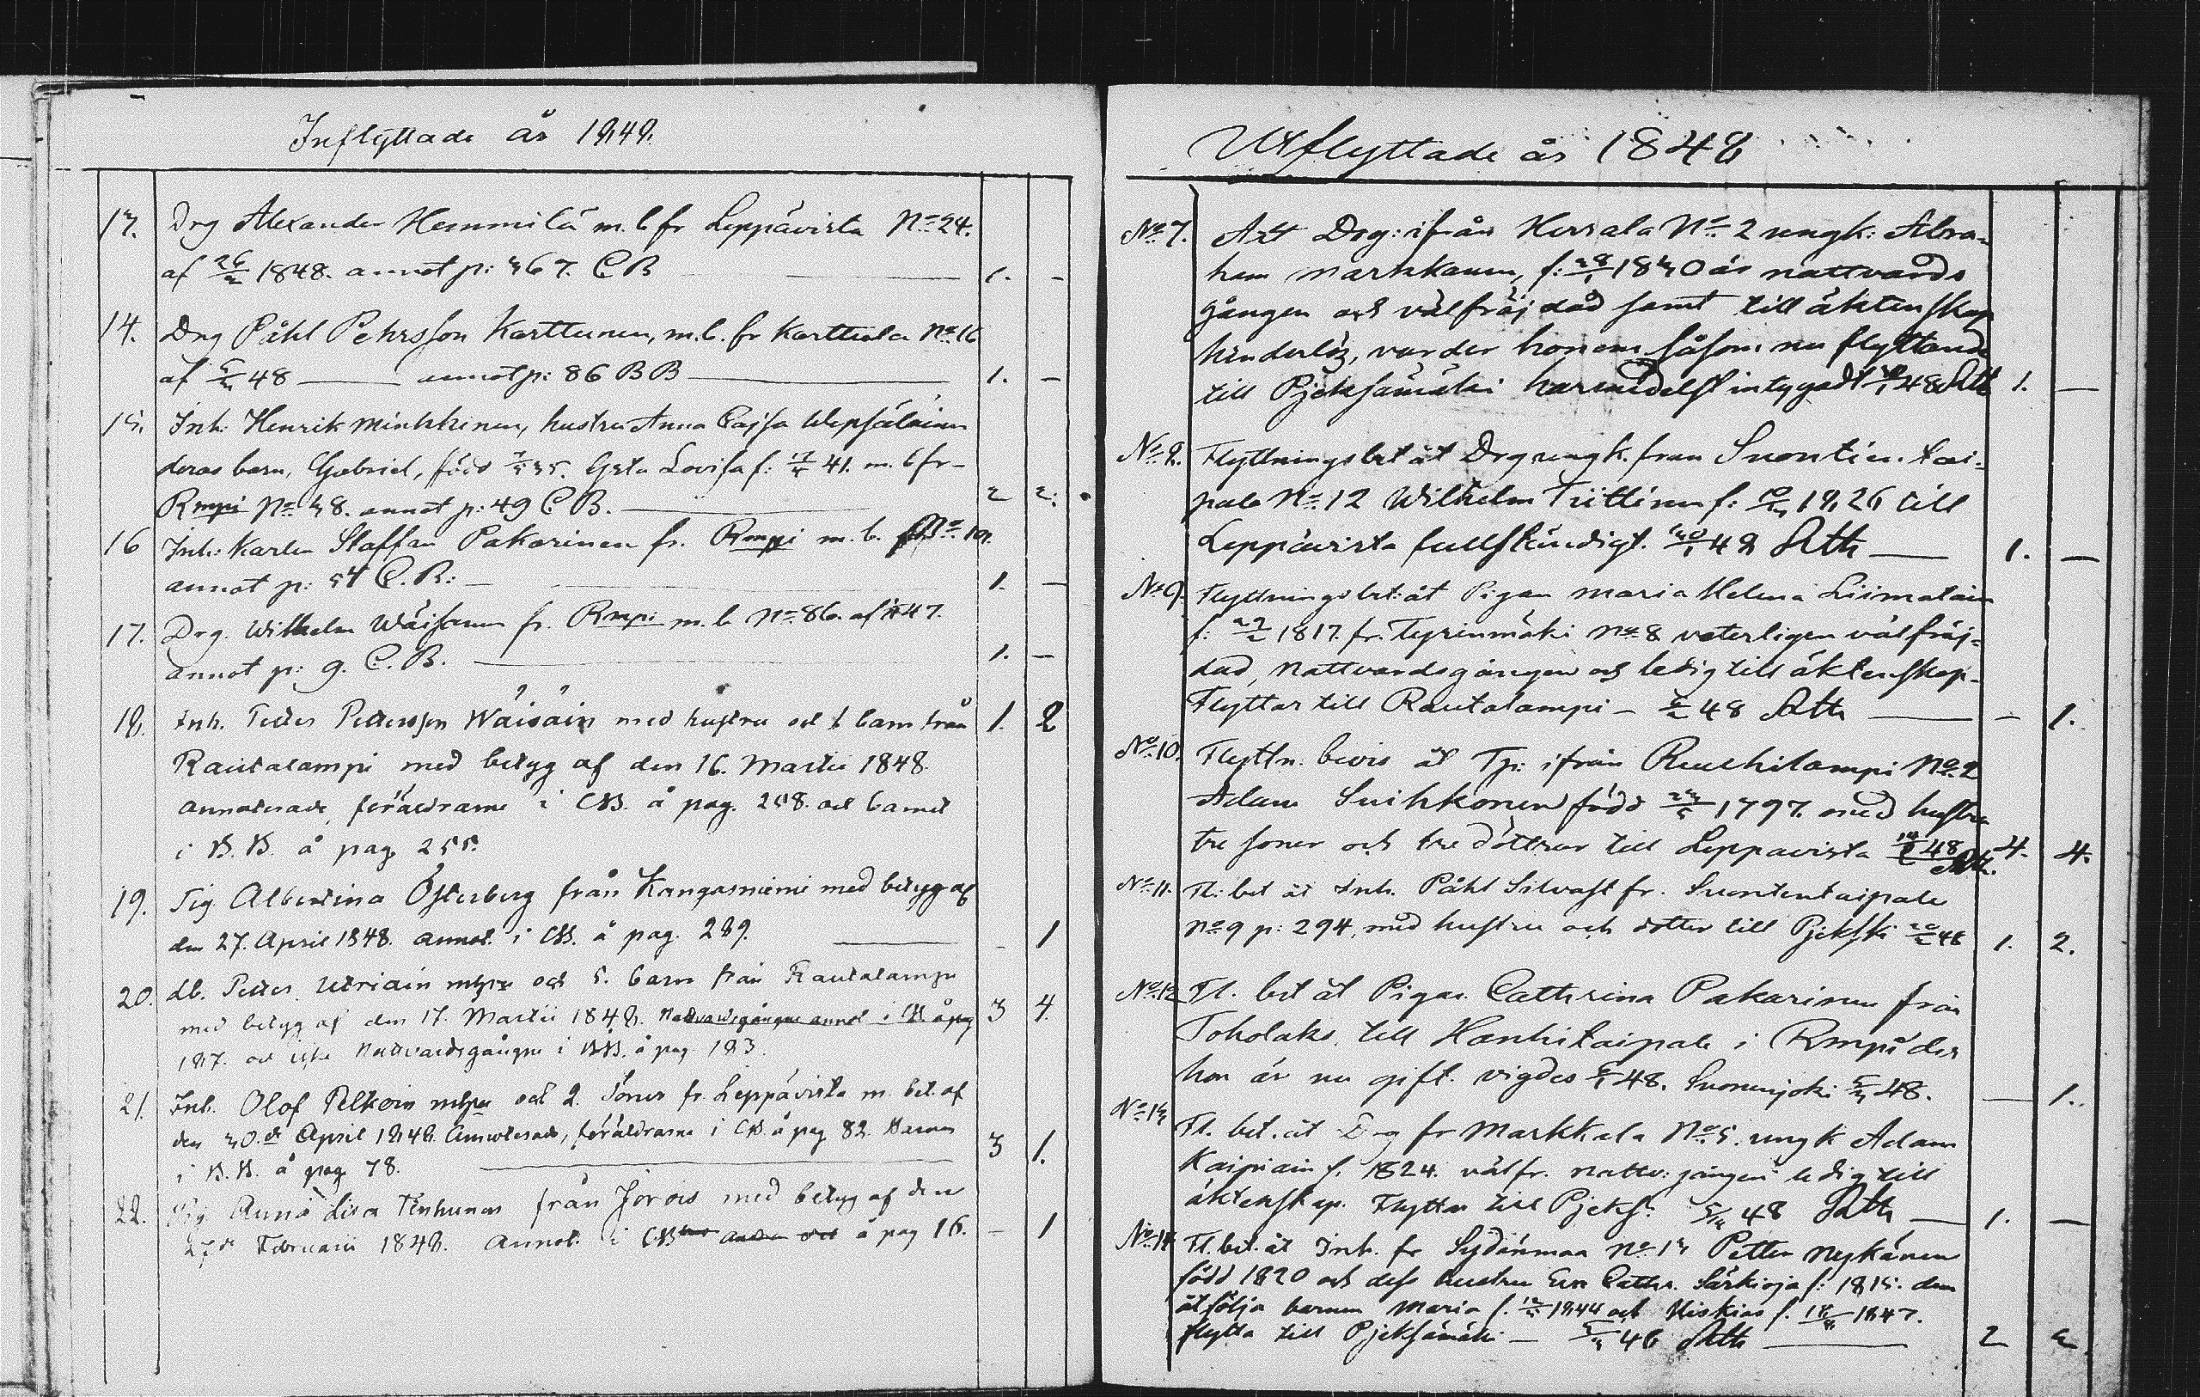 Inflyttade år 1848.
13. Drg Alexander Hemmilä m. b fr Leppävirta No 24.
af 26/2 1848. annot p: 367. C B — 1. -
14. Drg Påhl Pehrsson Karttunen, m. b. fr Karttula No 16
af 48 — annot p: 86 B B — 1. -
15. Inh: Henrik Minkkinen, hustru Anna Cajsa Wepsäläinen
deras barn, Gabriel, född 35. Greta Lovisa f: 41. m. b fr-
Rmpi No 38. annot p: 49 C B. — 2 2.
16 Inh: Karlen Staffan Pakarinen fr. Rmpi m. b.
annot p: 54 C. B: — 1. -
17. Drg. Wilhelm Wäisänen fr. Rmpi m. b No 86. af 47.
annot p: 9. C. B. — 1. -
18. Inh. Petter Pettersson Wäisäin med hustru och 1 barn från 1. 2
Rautalampi med betyg af den 16. Martii 1848.
annoterade, föräldrarne i CB. å pag. 258. och barnet
i B. B. å pag 255.
19. Pig Albertina Österberg från Kangasniemi med betyg af
den 27. April 1848. annot. i CB. å pag. 289. — - 1
20. db. Petter Utriain m hru och 5. barn från Rautalampi
med betyg af den 17. Martii 1848. Nattvardsgångne annot i CB å pag 3 4.
187. och icke Nattvardsgångne i BB. å pag 183.
21. Inh. Olof Pelkoin m hru och 2. Söner fr. Leppävirta m. bet. af
den 30.de April 1848. Annoterade, föräldrarne i CB. å pag 82. Barnen 3 1.
i B. B. å pag 78. —
22. Pig Anna Lisa Tenhunen från Jorois med betyg af den
27de Februarii 1848. annot. i CB å pag 16. - 1
Utflyttade år 1848
No 7. Att Drg: ifrån Herrala No 2 ungk: Abra-
ham Markkanen, f: 28/1 1830 är nattvards
gången och välfräjdad samt till äktenskap
hinderlös, varder honom såsom nu flyttande
till Pjeksämäki harmedelst intygadt 48 1. —
No 8. Flyttningsbet åt Drg ungk. från Suontientai-
pale No 12 Wilhelm Tiittinen f: 1826 till
Leppävirta fullständigt. 30/1 48 — 1. —
No 9. Flyttningsbet: åt Pigan Maria Helena Liimatain
f: 1817. fr. Tyrinmäki No 8 veterligen välfräj-
dad, Nattvardsgången och ledig till äktenskap.
Flyttar till Rautalampi — 48 — - 1.
No 10. Flyttn. bevis åt Tp: ifrån Ruuhilampi No 2
Adam Suihkonen född 1797. med hustru
tre söner och tre döttrar till Leppävirta 48 4. 4.
No 11. Fl: bet åt Inh. Påhl Silvast fr. Suontentaipale
No 9 p: 294, med hustru och dotter till Pjekski 48 1. 2.
No 12 Fl. bet åt Pigan Cathrina Pakarinen från
Toholaks till Hanhitaipale i Rmpi der
hon är nu gift. vigdes 48. Suonenjoki 48. — 1.
No 13 Fl. bet. åt Drg fr Markkala No 5. ungk Adam
Kaipiain f. 1824. välfr. nattv: gången ledig till
äktenskap. Flyttar till Pjeks: 48 — 1. —
No 14 Fl. bet. åt Inh. fr Sydänmaa No 13 Petter Nykänen
född 1820 och dess hustru Eva Cathr. Särkioja f: 1815: dem
åtfölja barnen Maria f. 1844 och Hiskias f. 1847.
flytta till Pjeksämäki — — 2 2.